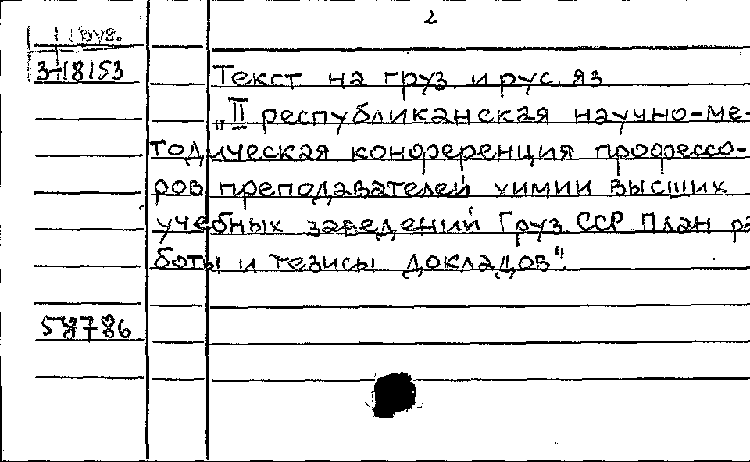 2
3-18153
Текст на груз и рус яз
„II республиканская научно-ме-
тодическая конференция профессо-
ров преподавателей химии высших
учебных заведений Груз. ССР План ра
боты и тезисы докладов".
58786